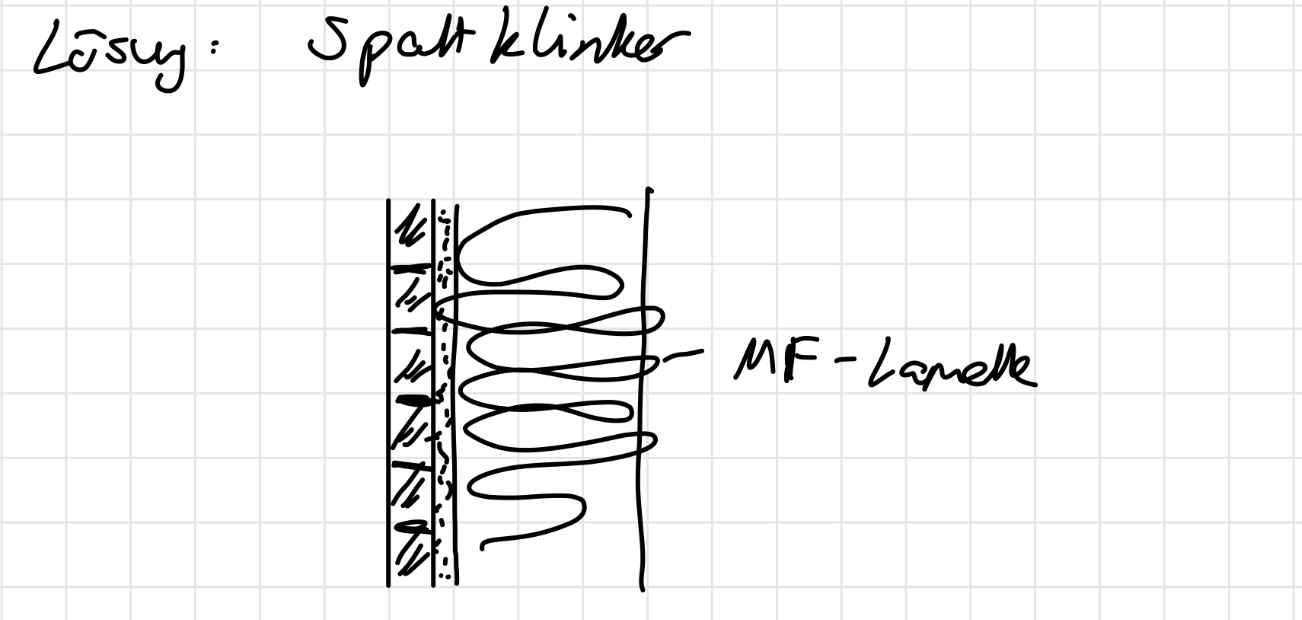 Lösung: Spaltklinker
MF-Lamelle